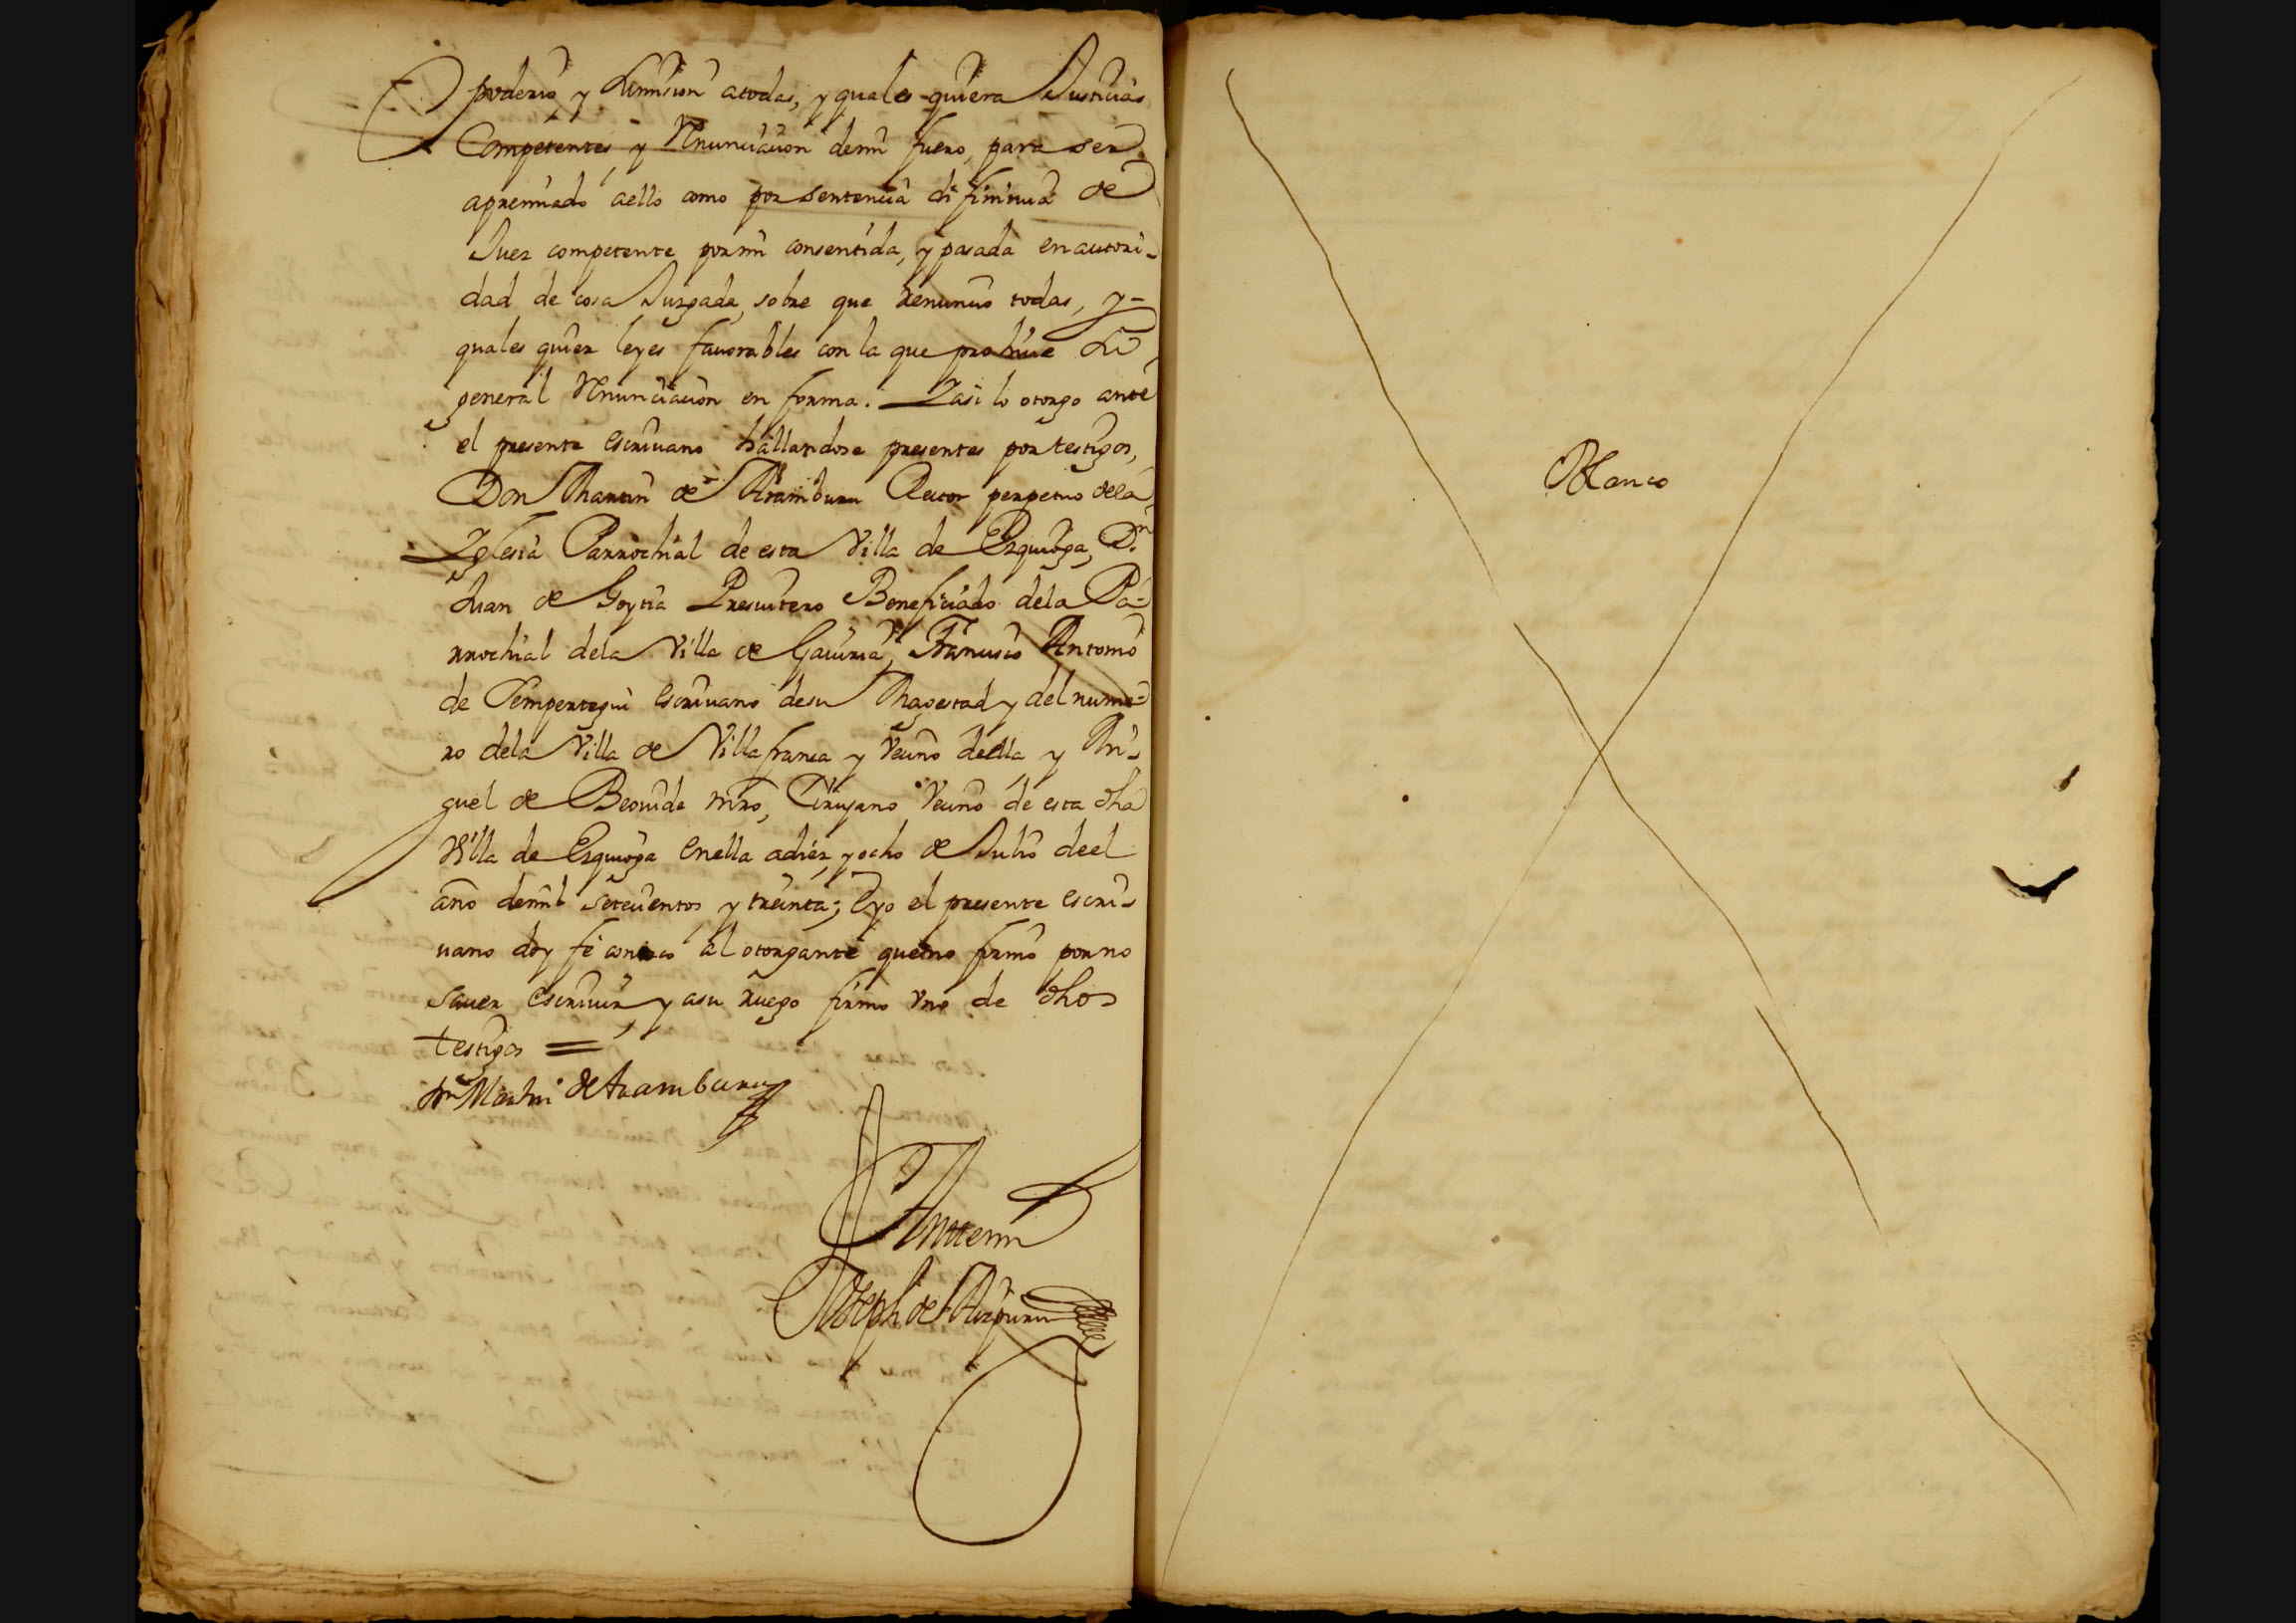 poderio y sumision atodas, y quales quiera Justicias
Competentes, y Renunciacion demi fuero, para ser
apremiado aello como por sentencia difinitiua de
Juez competente pormi consentida, y pasada en autori-
dad de cosa Juzgada, sobre que renuncio todas, y-
quales quier leyes fauorables con la que prohiue La
general Renunciacion en forma. Yasi lo otorgo ante
el presente escriuano hallandose presentes por testigos,
Don Martin de Aramburu Rector perpetuo dela
Yglesia Parrochial de esta Villa de Ezquioga, Dn
Juan de Goytia Presuitero Beneficiado dela Pa-
rrochial dela Villa de Gauiria, Francisco Antonio
de escriuano desu Magestad y del nume-
ro dela Villa de Villafranca y Vecino della y Mi-
guel de Beouide mro, Cirujano Vecino de esta dha
Villa de Ezquioga enella adiez, yocho de Julio deel
año demil setecientos y treinta; Eyo el presente escri-
uano doy fe conozco al otorgante queno firmo por no
sauer escriuir, y asu ruego firmo vno de dhos
testigos =
Dn Martin de Aramburu
Antemi
Joseph de Aizpuru
Blanco